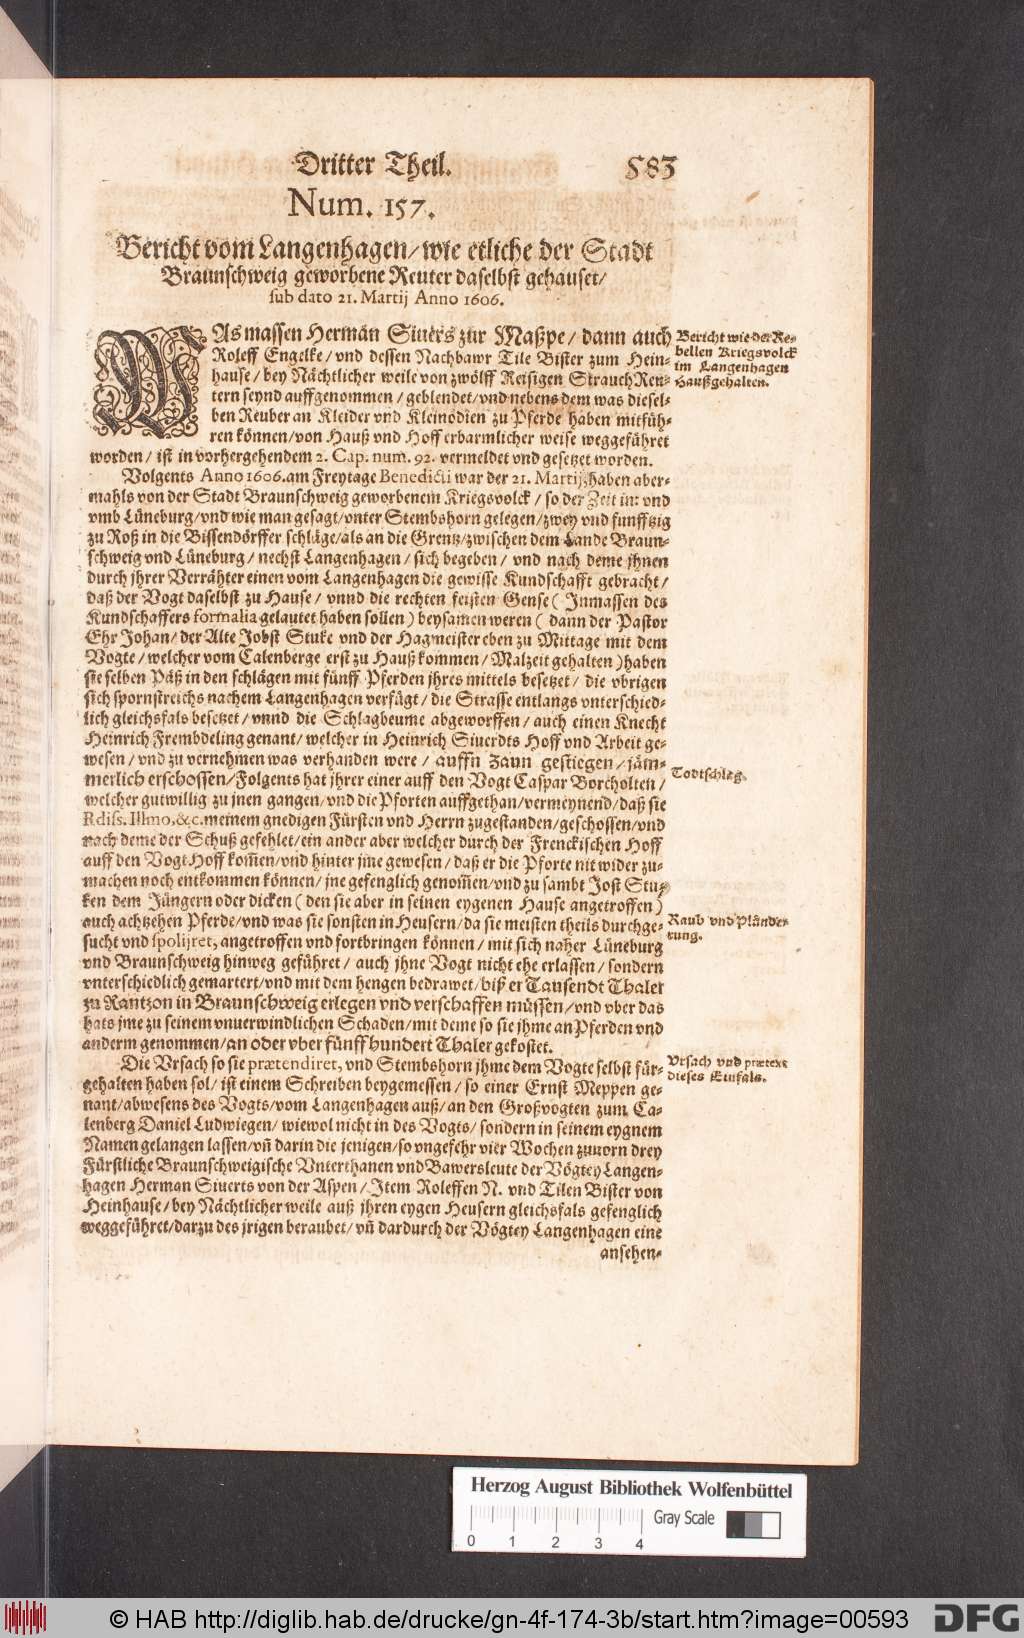 Dritter Theil. 583
Num. 157.
Bericht vom Langenhagen/ wie etliche der Stadt
Braunschweig geworbene Reuter daselbst gehauset/
sub dato 21. Martij Anno 1606.
WAs massen Hermān Siuers zur Maßpe/ dann auch
Roleff Engelke/ vnd dessen Nachbawr Tile Bister zum Hein-
hause/ bey Nächtlicher weile von zwölff Reisigen StrauchReu-
tern seynd auffgenommen/ geblendet/ vnd nebens dem was diesel-
ben Reuber an Kleider vnd Kleinodien zu Pferde haben mitfüh-
ren können/ von Hauß vnd Hoff erbarmlicher weise weggeführet
worden/ ist in vorhergehendem 2. Cap. num. 92. vermeldet vnd gesetzet worden.
Bericht wie der Re-
bellen Kriegsvolck
im Langenhagen
Haußgehalten.
Volgents Anno 1606. am Freytage Benedicti war der 21. Martij, haben aber-
mahls von der Stadt Braunschweig geworbenem Kriegsvolck/ so der Zeit in vnd
vmb Lüneburg/ vnd wie man gesagt/ vnter Stembshorn gelegen/ zwey vnd funfftzig
zu Roß in die Bissendörffer schläge/ als an die Grentz/ zwischen dem Lande Braun-
schweig vnd Lüneburg/ nechst Langenhagen/ sich begeben/ vnd nach deme jhnen
durch jhrer Verrähter einen vom Langenhagen die gewisse Kundschafft gebracht/
daß der Vogt daselbst zu Hause/ vnnd die rechten feisten Gense ( Inmassen des
Kundschaffers formalia gelautet haben sollen ) beysamen weren ( dann der Pastor
Ehr Johan/ der Alte Jobst Stuke vnd der Hagmeister eben zu Mittage mit dem
Vogte/ welcher vom Calenberge erst zu Hauß kommen/ Malzeit gehalten ) haben
sie selben Päß in den schlägen mit fünff Pferden jhres mittels besetzet/ die vbrigen
sich spornstreichs nachem Langenhagen verfügt/ die Strasse entlangs vnterschied-
lich gleichsfals besetzet/ vnnd die Schlagbeume abgeworffen/ auch einen Knecht
Heinrich Frembdeling genant/ welcher in Heinrich Siuerdts Hoff vnd Arbeit ge-
wesen/ vnd zu vernehmen was verhanden were/ auffn Zaun gestiegen/ jäm-
merlich erschossen/ Folgents hat jhrer einer auff den Vogt Caspar Borcholten/
welcher gutwillig zu jnen gangen/ vnd die Pforten auffgethan/ vermeynend/ daß sie
Rdiss. Illmo, &c. meinem gnedigen Fürsten vnd Herrn zugestanden/ geschossen/ vnd
nach deme der Schuß gefehlet/ ein ander aber welcher durch der Frenckischen Hoff
auff den Vogt Hoff kom̄en/ vnd hinter jme gewesen/ daß er die Pforte nit wider zu-
machen noch entkommen können/ jne gefenglich genom̄en/ vnd zu sambt Jost Stu-
ken dem Jüngern oder dicken ( den sie aber in seinen eygenen Hause angetroffen )
auch achtzehen Pferde/ vnd was sie sonsten in Heusern/ da sie meisten theils durchge-
sucht vnd spolijret, angetroffen vnd fortbringen können/ mit sich naher Lüneburg
vnd Braunschweig hinweg geführet/ auch jhne Vogt nicht ehe erlassen/ sondern
vnterschiedlich gemartert/ vnd mit dem hengen bedrawet/ biß er Tausendt Thaler
zu Rantzon in Braunschweig erlegen vnd verschaffen müssen/ vnd vber das
hats jme zu seinem vnuerwindlichen Schaden/ mit deme so sie jhme an Pferden vnd
anderm genommen/ an oder vber fünffhundert Thaler gekostet.
Todtschlag.
Raub vnd Plünde-
rung.
Die Vrsach so sie prætendiret, vnd Stembshorn jhme dem Vogte selbst für-
gehalten haben sol/ ist einem Schreiben beygemessen/ so einer Ernst Meppen ge-
nant/ abwesens des Vogts/ vom Langenhagen auß/ an den Großvogten zum Ca-
lenberg Daniel Ludwiegen/ wiewol nicht in des Vogts/ sondern in seinem eygnem
Namen gelangen lassen/ vn̄ darin die jenigen/ so vngefehr vier Wochen zuuorn drey
Fürstliche Braunschweigische Vnterthanen vnd Bawersleute der Vögtey Langen-
hagen Herman Siuerts von der Aspen/ Item Roleffen N. vnd Tilen Bister von
Heinhause/ bey Nächtlicher weile auß jhren eygen Heusern gleichsfals gefenglich
weggeführet/ darzu des jrigen beraubet/ vn̄ dardurch der Vögtey Langenhagen eine
ansehen-
Vrsach vnd prætext
dieses Einfals.
Herzog August Bibliothek Wolfenbüttel
0 1 2 3 4 Gray Scale
© HAB http://diglib.hab.de/drucke/gn-4f-174-3b/start.htm?image=00593 DFG